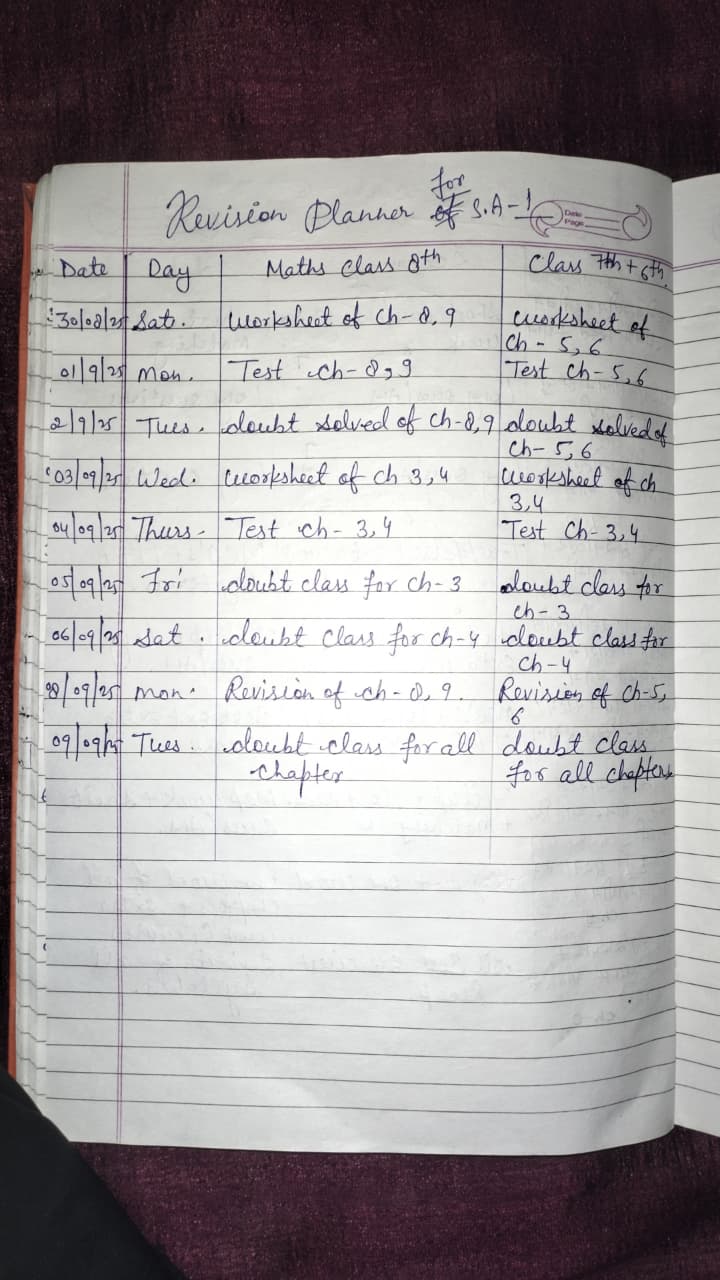 Revision Planner for S.A-1
Date
Page
Date Day Maths Class 8th Class 7th + 6th
30/08/25 Sat. Worksheet of Ch-8,9 Worksheet of
Ch - 5,6
01/9/25 Mon. Test ch-8,9 Test Ch-5,6
2/9/25 Tues. doubt solved of Ch-8,9 doubt solved of
Ch- 5,6
03/09/25 Wed. Worksheet of ch 3,4 Worksheet of ch
3,4
04/09/25 Thurs- Test ch- 3,4 Test Ch- 3,4
05/09/25 Fri doubt class for ch-3 doubt class for
ch-3
06/09/25 Sat. doubt class for ch-4 doubt class for
Ch-4
08/09/25 Mon. Revision of ch-8,9. Revision of Ch-5,
6
09/09/25 Tues. doubt class for all doubt class
chapter for all chapters